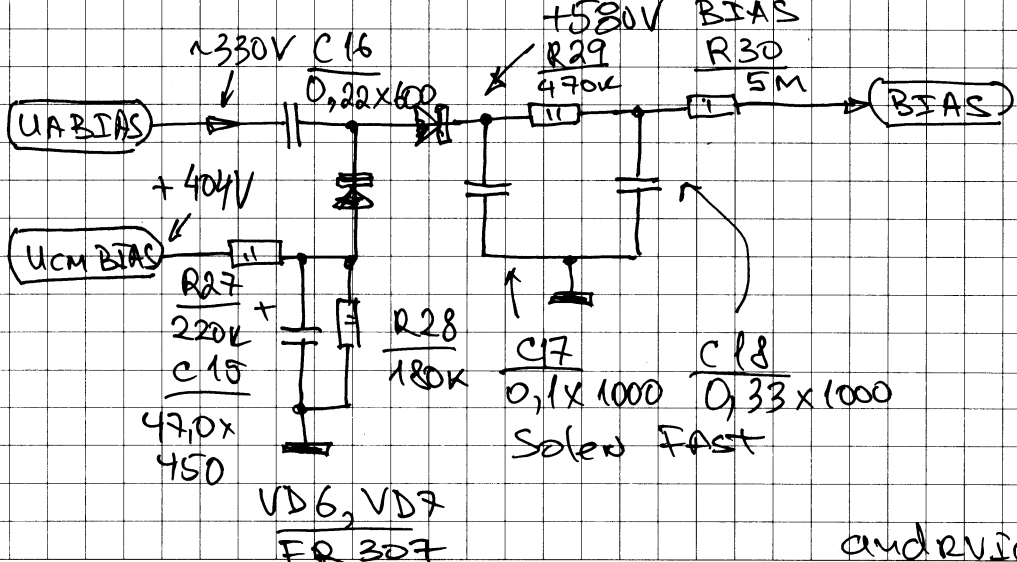 +580V BIAS
~330V C16
0,22x600
R29
470K
R30
5M
UA BIAS
BIAS
+404V
UCM BIAS
R27
220K
+
C15
47,0x
450
R28
180K
C17
0,1x1000
C18
0,33x1000
Solen FAST
VD6, VD7
FR 307
andRVI